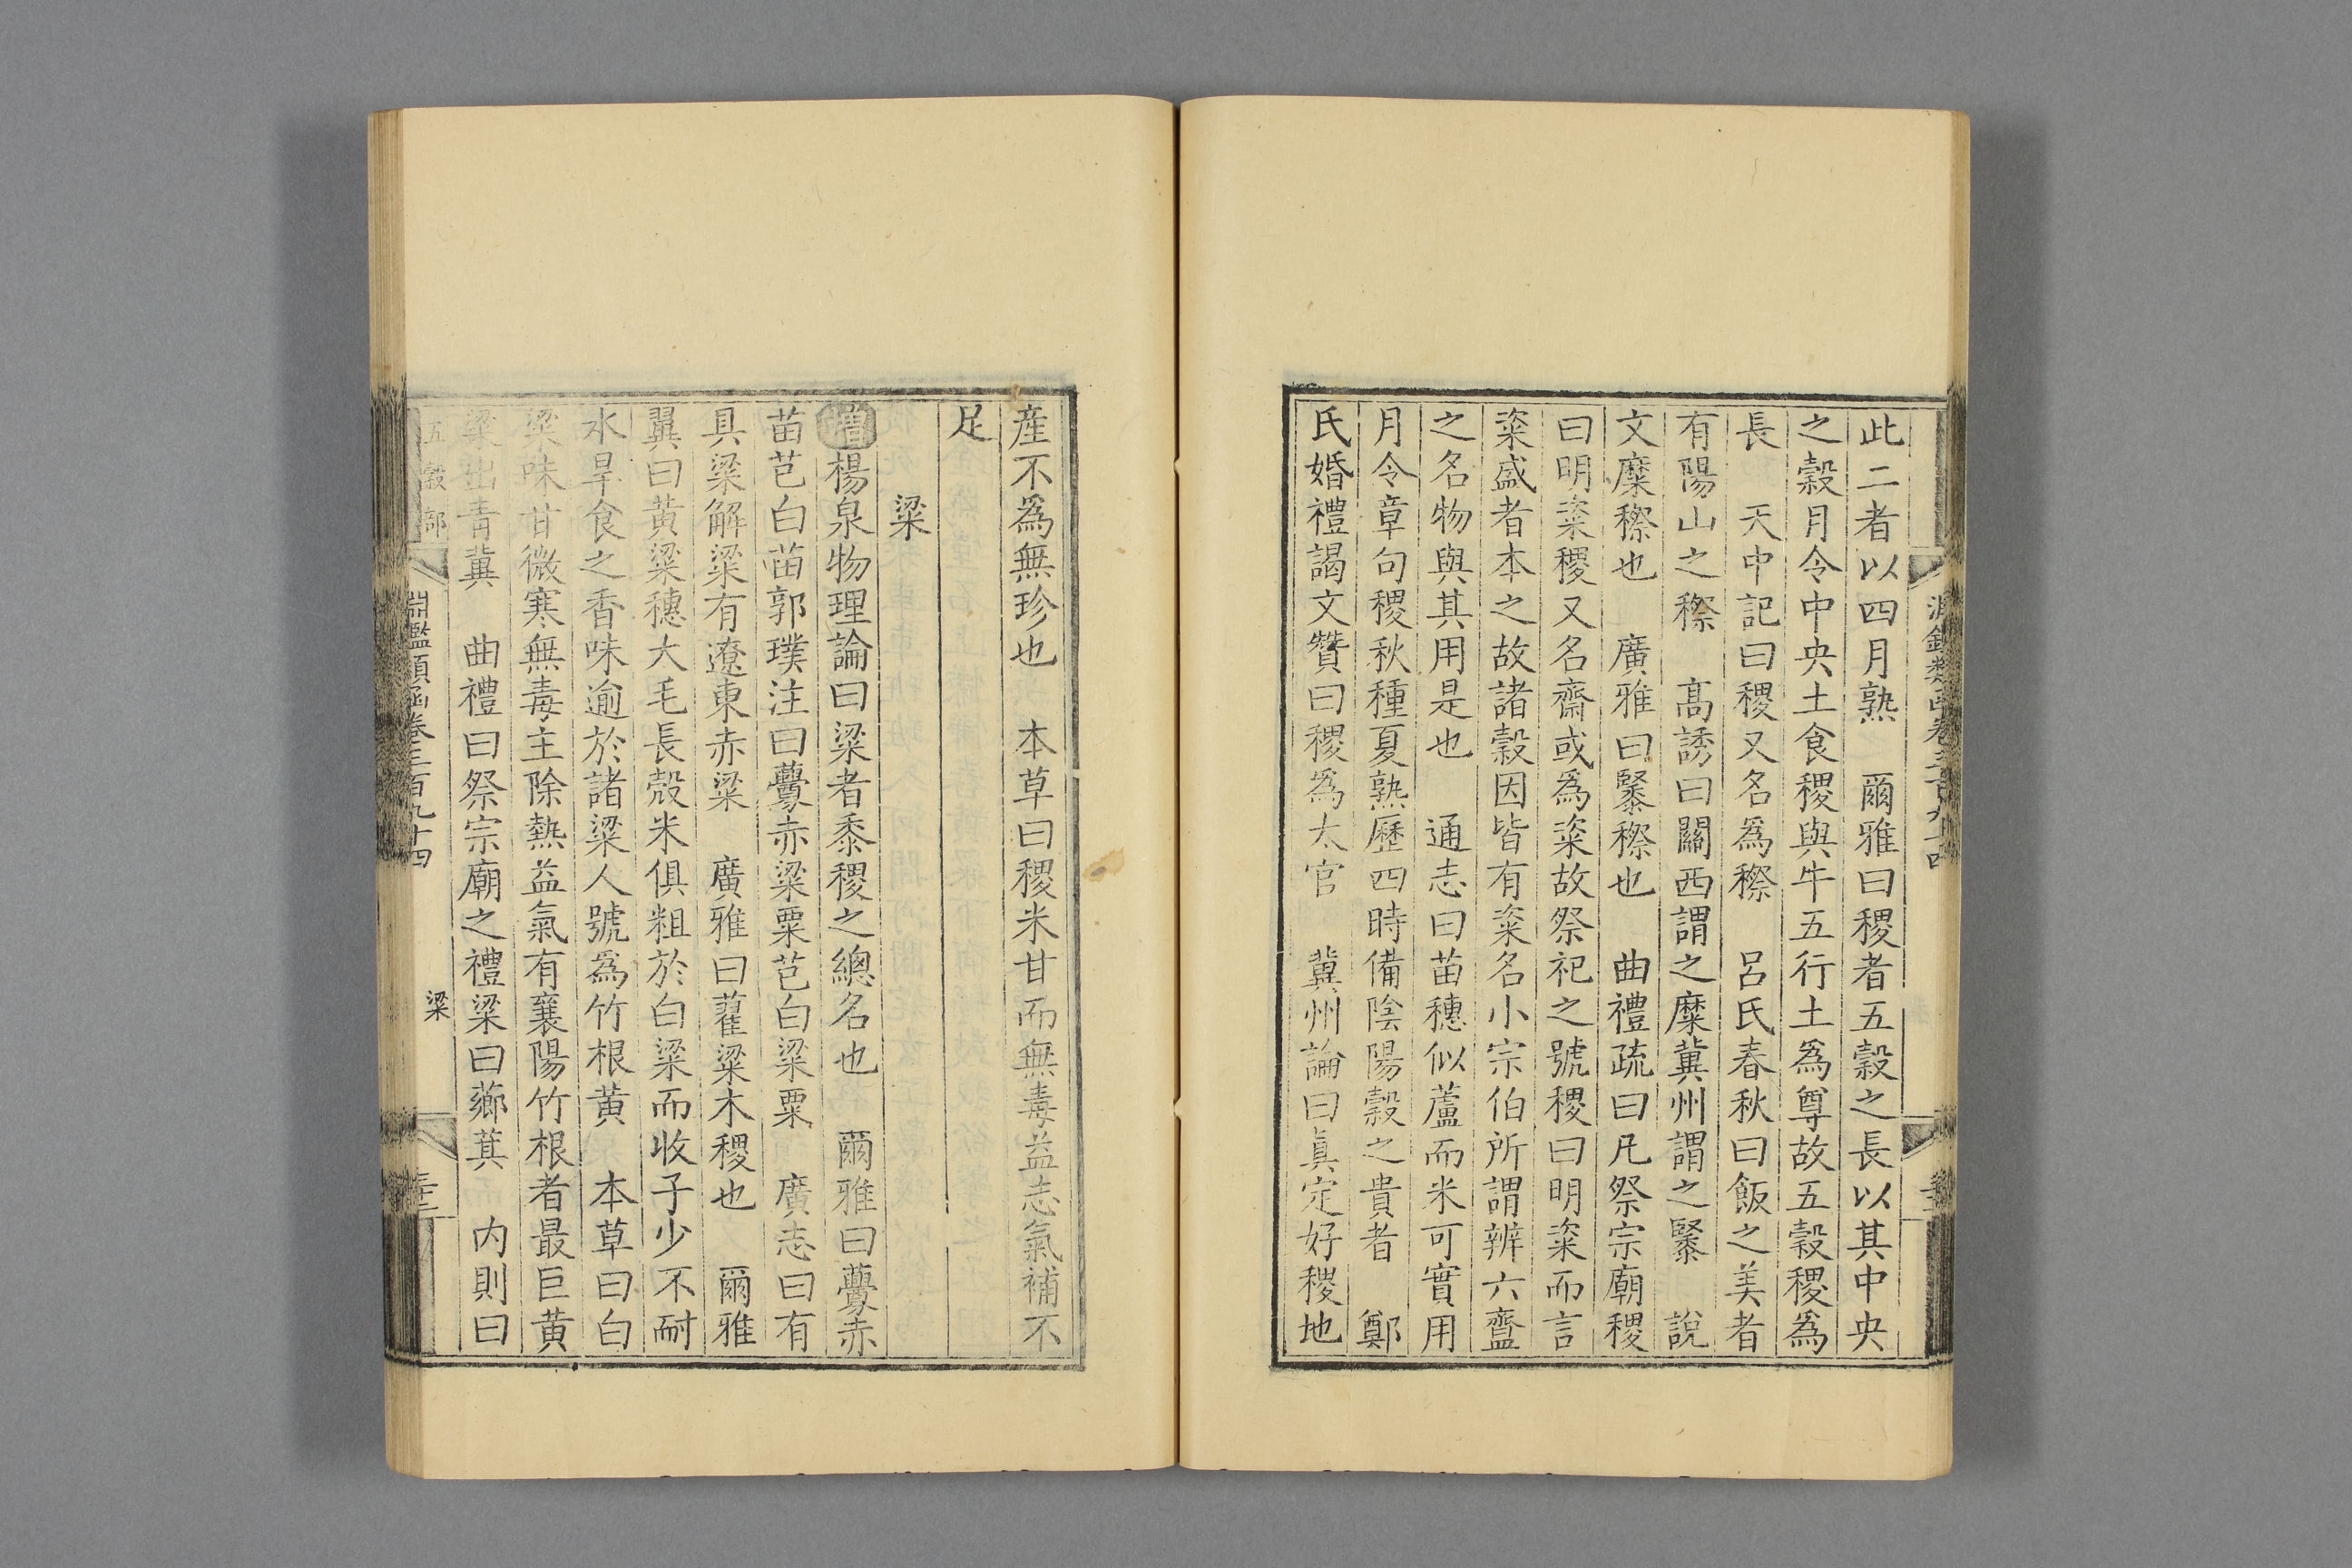 此二者以四月熟　爾雅曰稷者五穀之長以其中央
之穀月令中央土食稷與牛五行土為尊故五穀稷為
長　天中記曰稷又名為穄　呂氏春秋曰飯之美者
有陽山之穄　髙誘曰關西謂之糜冀州謂之䅣　說
文糜穄也　廣雅曰䅣穄也　曲禮疏曰凡祭宗廟稷
曰明粢稷又名齋或為粢故祭祀之號稷曰明粢而言
粢盛者本之故諸穀因皆有粢名小宗伯所謂辨六齍
之名物與其用是也　通志曰苗穗似蘆而米可實用
月令章句稷秋種夏熟歷四時備陰陽穀之貴者　鄭
氏婚禮謁文贊曰稷為太官　冀州論曰真定好稷地
產不為無珍也　本草曰稷米甘而無毒益志氣補不
足
粱
增楊泉物理論曰粱者黍稷之總名也　爾雅曰虋赤
苗芑白苗郭璞注曰虋赤粱粟芑白粱粟　廣志曰有
具粱解粱有遼東赤粱　廣雅曰藋粱木稷也　爾雅
翼曰黄粱穗大毛長殻米俱粗於白粱而收子少不耐
水旱食之香味逾於諸粱人號為竹根黄　本草曰白
粱味甘微寒無毒主除熱益氣有襄陽竹根者最巨黄
粱出青冀　曲禮曰祭宗廟之禮粱曰薌萁　内則曰
五穀部　淵鑑類函卷三百九十四　粱